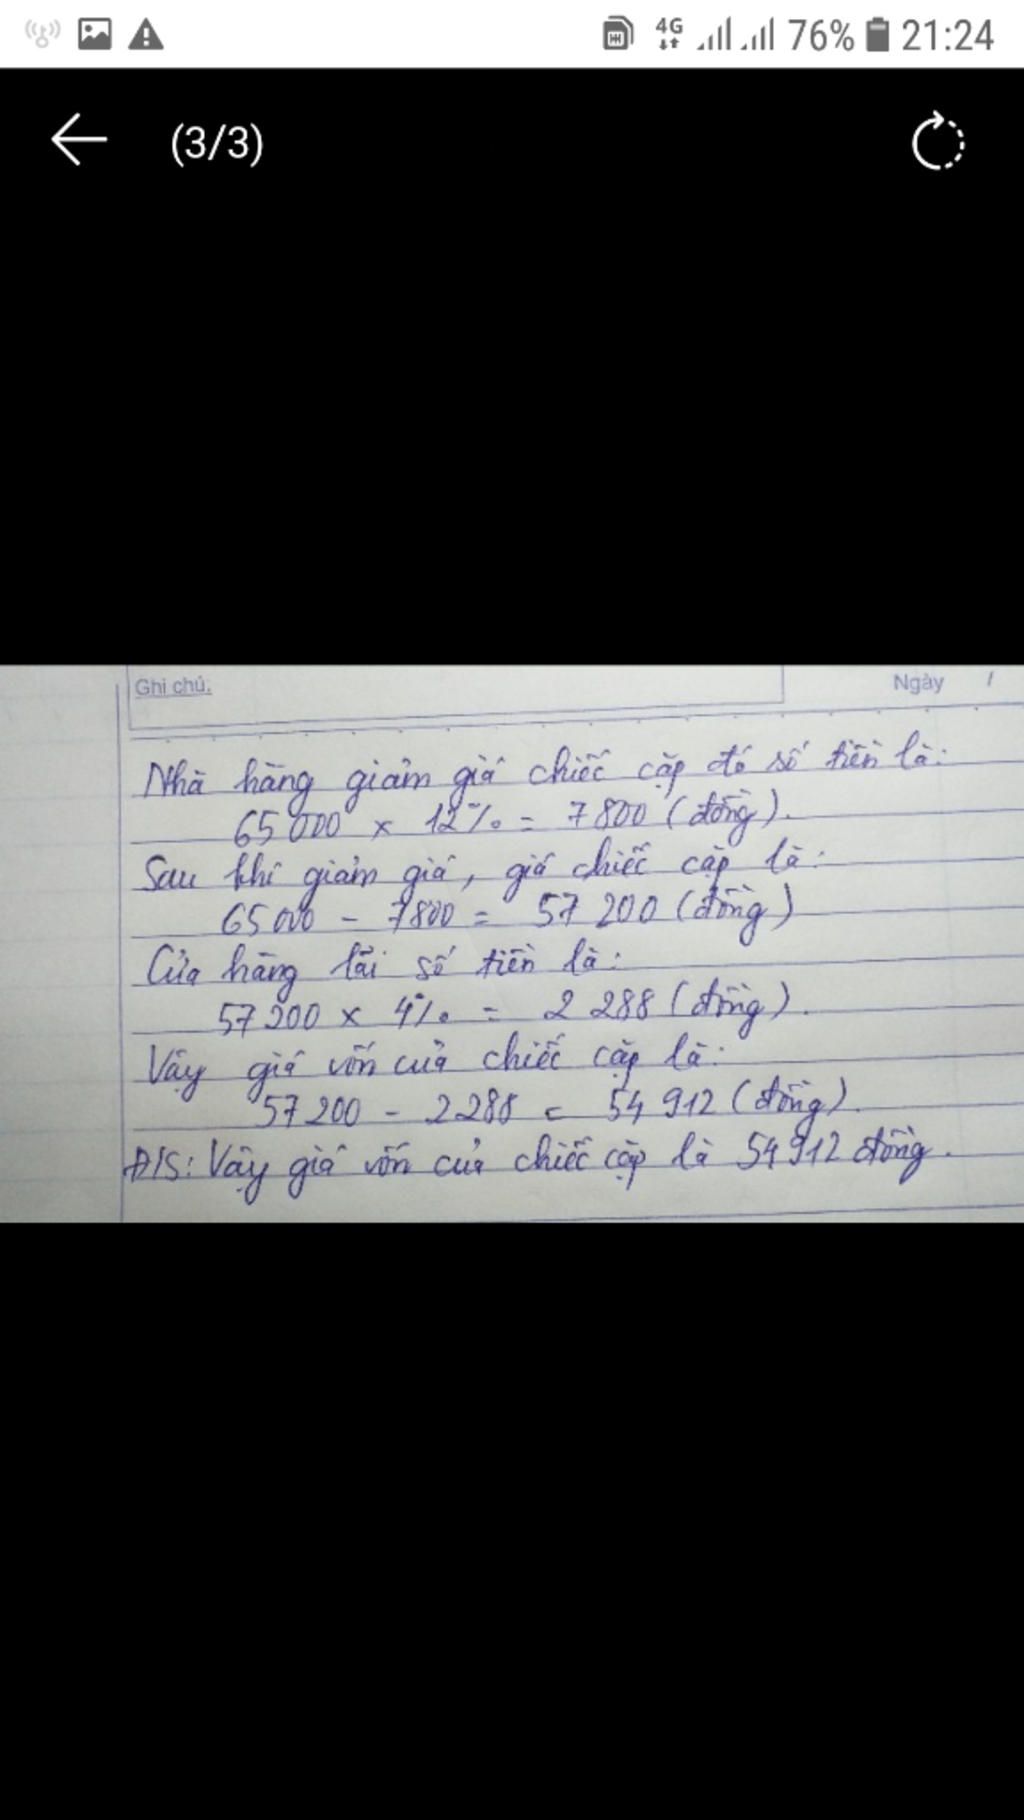 4G 76% 21:24
(3/3)
Ghi chú. Ngày /
Nhà hàng giảm giá chiếc cặp đó số tiền là:
65 000 x 12% = 7 800 (đồng).
Sau khi giảm giá, giá chiếc cặp là:
65 000 - 7 800 = 57 200 (đồng)
Cửa hàng lãi số tiền là:
57 200 x 4% = 2 288 (đồng).
Vậy giá vốn của chiếc cặp là:
57 200 - 2 288 = 54 912 (đồng).
Đ/S: Vậy giá vốn của chiếc cặp là 54 912 đồng.